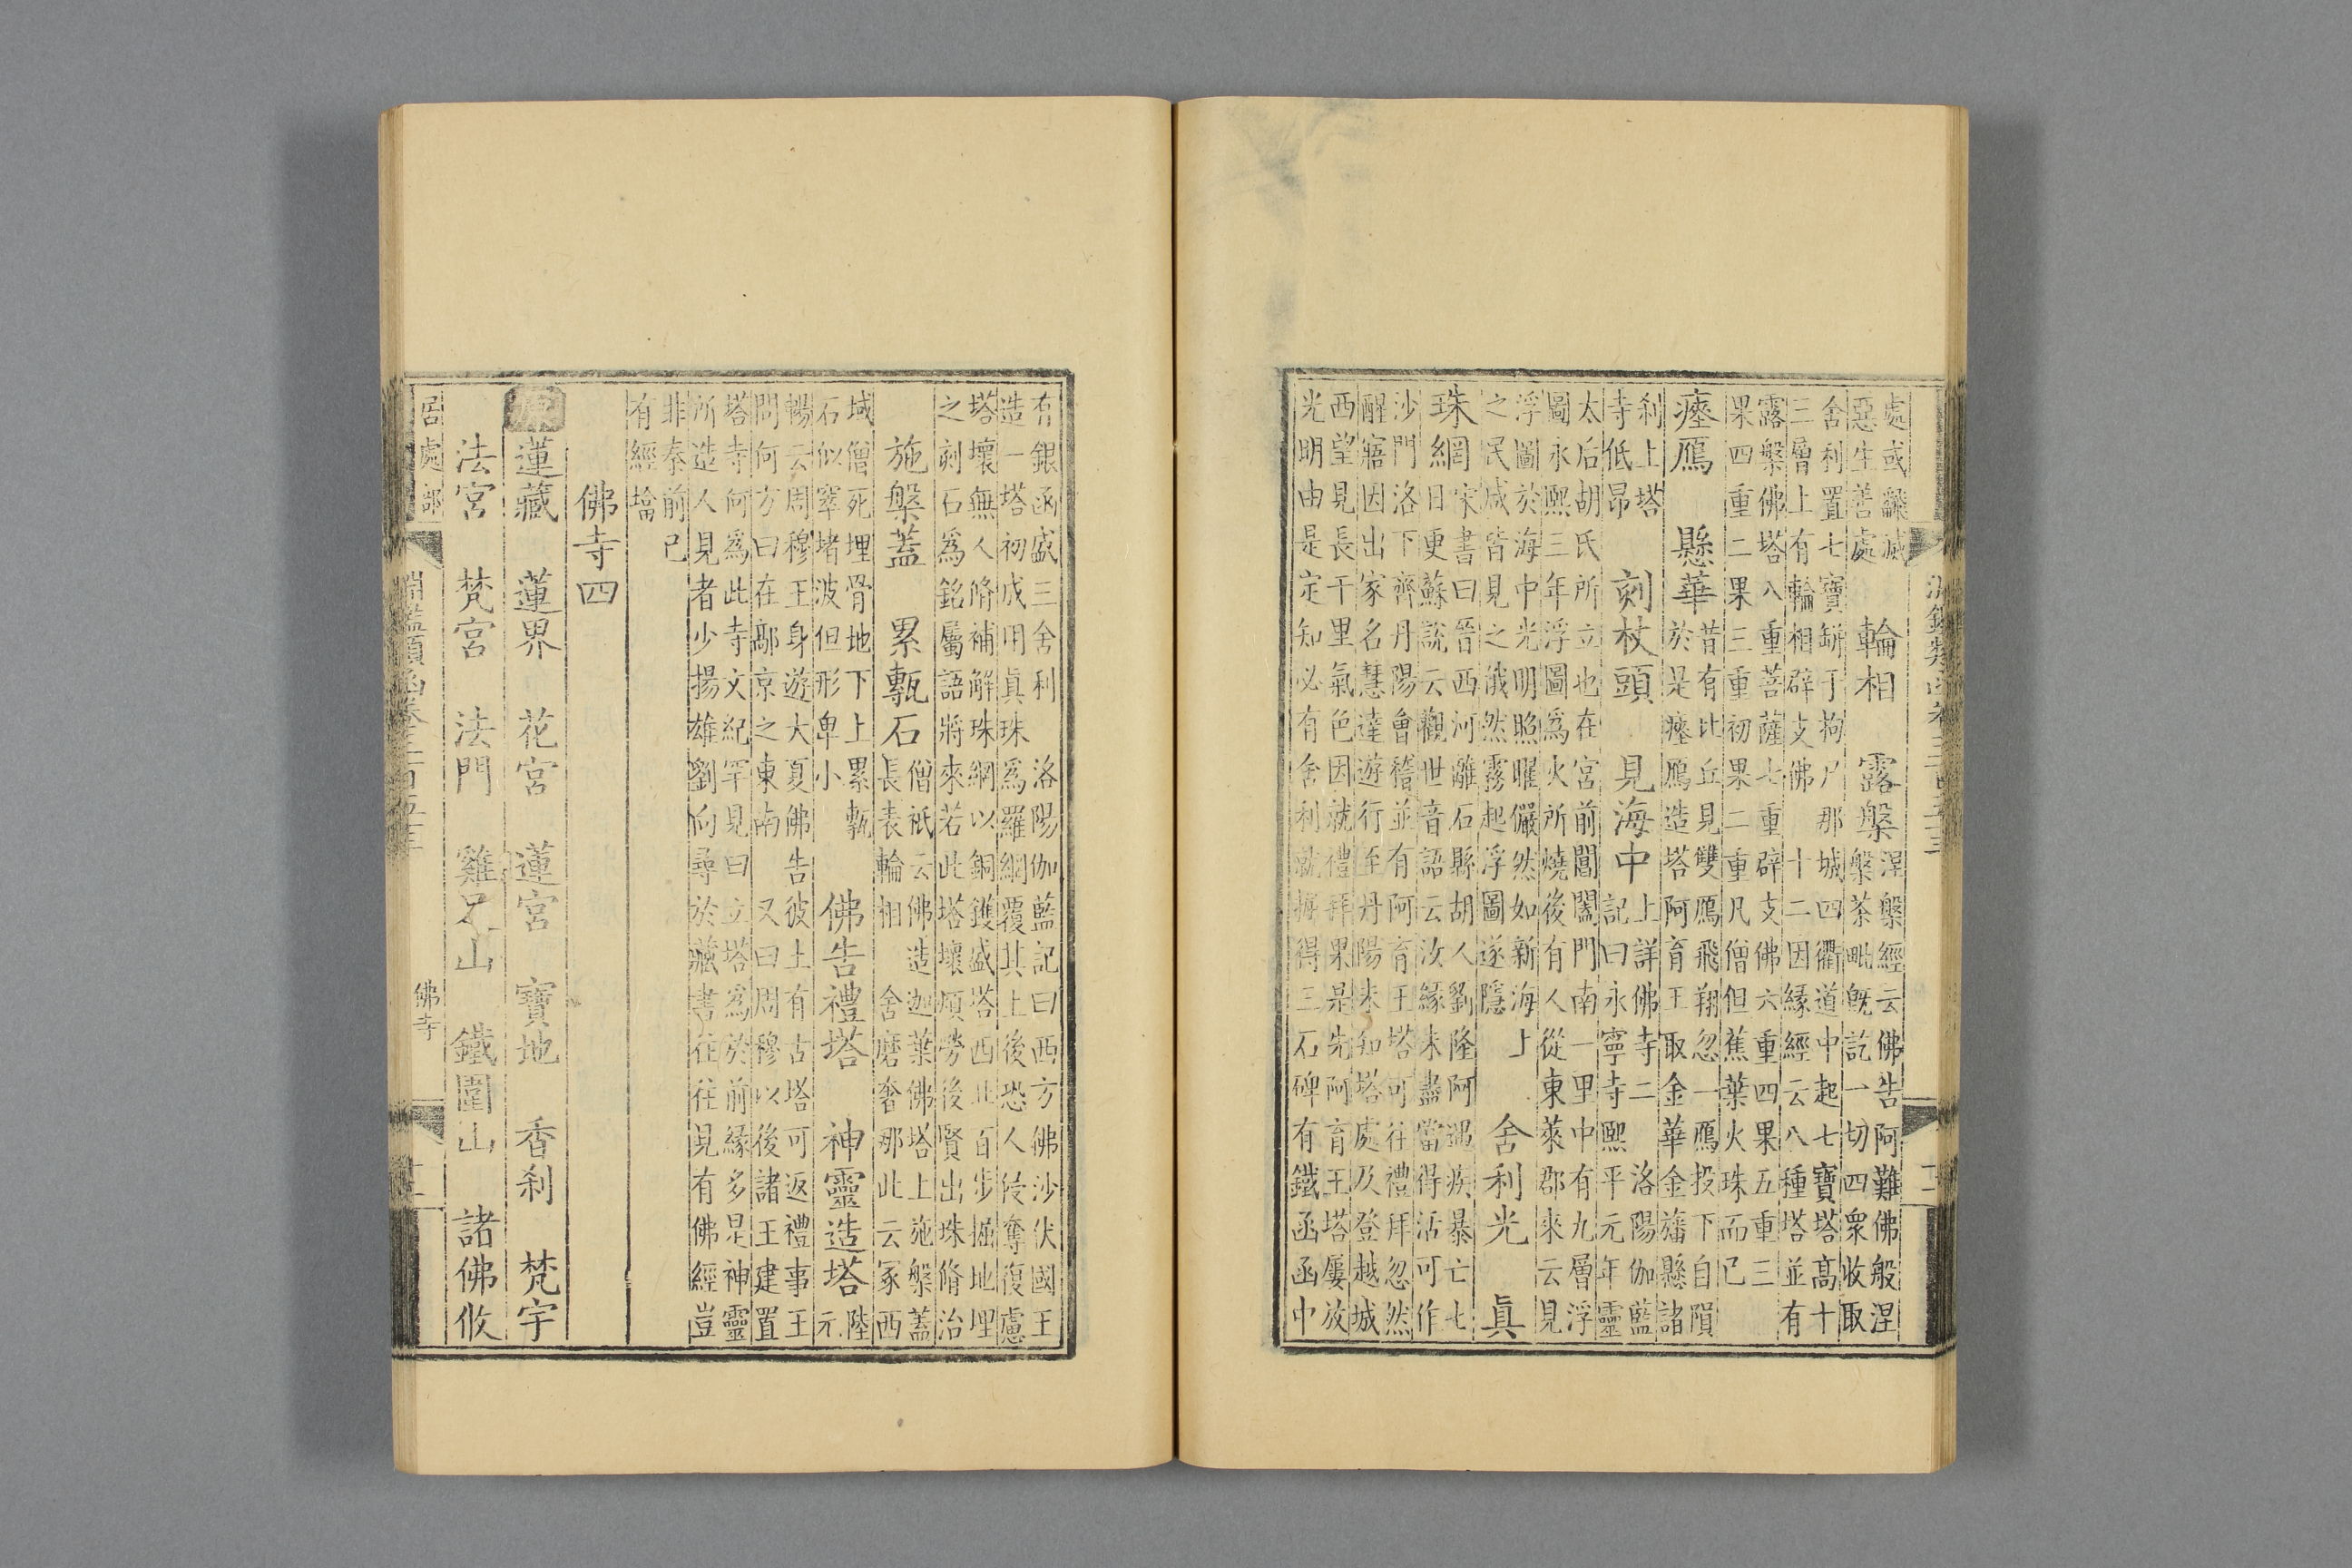 處或緣滅
惡生善處
輪相
露槃
涅槃經云佛告阿難佛般涅
槃茶毗既訖一切四衆收取
舍利置七寶缾于拘尸那城四衢道中起七寶塔高十
三層上有輪相辟支佛十二因縁經云八種塔並有
露槃佛塔八重菩薩七重辟支佛六重四果五重三
果四重二果三重初果二重凡僧但蕉葉火珠而已
瘞鴈
懸華
昔有比丘見雙鴈飛翔忽一鴈投下自隕
於是瘞鴈造塔阿育王取金華金旛懸諸
刹上塔
寺低昂
刻杖頭
見海中
上詳佛寺二
記曰永寧寺熙平元年靈
洛陽伽藍
太后胡氏所立也在宮前閶闔門南一里中有九層浮
圖永熙三年浮圖爲火所燒後有人從東萊郡來云見
浮圖於海中光明照曜儼然如新海上
之民咸皆見之俄然霧起浮圖遂隱
舍利光
眞
珠網
宋書曰晉西河離石縣胡人劉隆阿遇疾暴亡七
日更蘇説云觀世音語云汝緣未盡當得活可作
沙門洛下齊丹陽會稽並有阿育王塔可往禮拜忽然
醒寤因出家名慧達遊行至丹陽未知塔處及登越城
西望見長干里氣色因就禮拜果是先阿育王塔屢放
光明由是定知必有舍利就掘得三石碑有鐵函函中
有銀函盛三舍利
洛陽伽藍記曰西方佛沙伏國王
造一塔初成用眞珠爲羅網覆其上後恐人侵奪復慮
塔壞無人脩補解珠網以銅鑊盛塔西北百步掘地埋
之刻石爲銘屬語將來若此塔壞煩勞後賢出珠脩治
施槃蓋
累甎石
僧祇云佛造迦葉佛塔上施槃蓋
長表輪相
舍磨奢那此云冢西
域僧死埋骨地下上累甎
石似窣堵波但形卑小
佛告禮塔
神靈造塔
陸
元
暢云周穆王身遊大夏佛告彼土有古塔可返禮事王
問何方曰在鄗京之東南又曰周穆以後諸王建置
塔寺何爲此寺文紀罕見曰立塔爲於前緣多是神靈
所造人見者少揚雄劉向尋於藏書往往見有佛經豈
非秦前已
有經墖
佛寺四
蓮藏 蓮界 花宮 蓮宮 寶地 香刹 梵宇
法宮 梵宮 法門 雞足山 鐵圍山 諸佛攸
居處部
淵鑑類函卷三百五十三
佛寺
十二